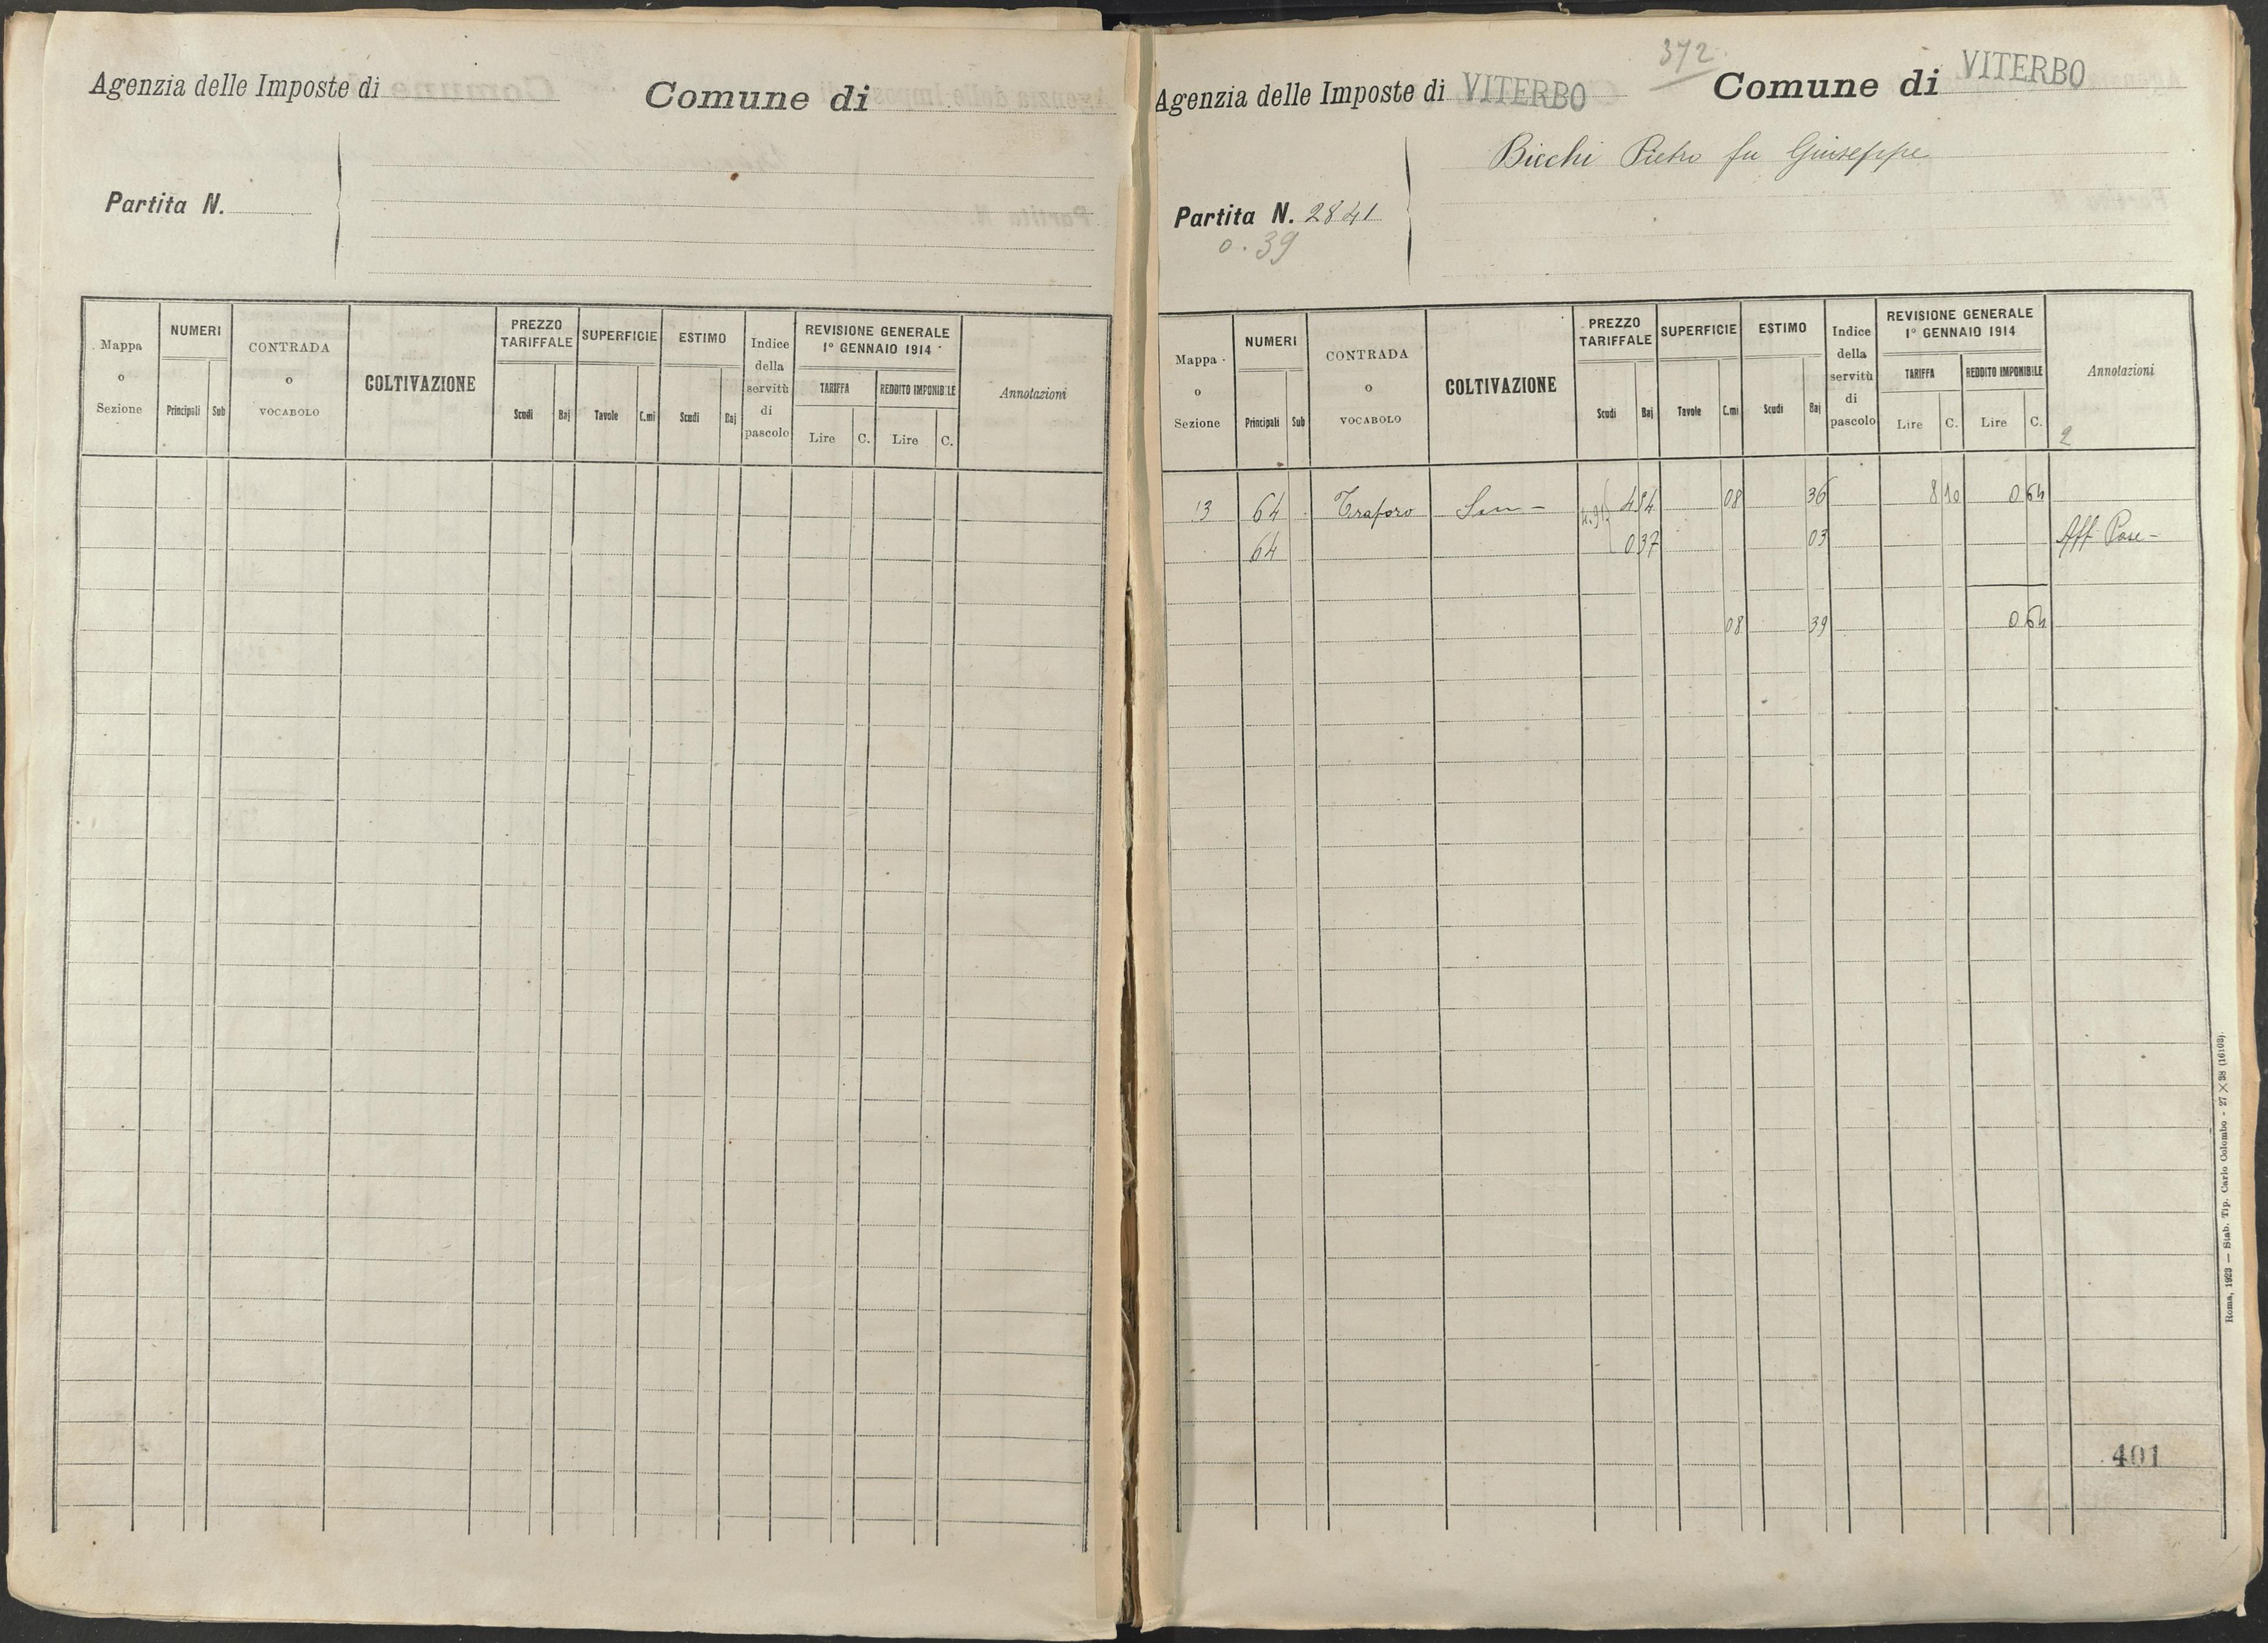 Agenzia delle Imposte di
Comune di
Partita N.
Mappa o Sezione
NUMERI
Principali Sub
CONTRADA o VOCABOLO
COLTIVAZIONE
PREZZO TARIFFALE
Scudi Baj
SUPERFICIE
Tavole C.mi
ESTIMO
Scudi Baj
Indice della servitù di pascolo
REVISIONE GENERALE
1º GENNAIO 1914
TARIFFA
Lire C.
REDDITO IMPONIBILE
Lire C.
Annotazioni
372
Agenzia delle Imposte di VITERBO
Comune di VITERBO
Bicchi Pietro fu Giuseppe
Partita N. 2841
0.39
Mappa o Sezione
NUMERI
Principali Sub
CONTRADA o VOCABOLO
COLTIVAZIONE
PREZZO TARIFFALE
Scudi Baj
SUPERFICIE
Tavole C.mi
ESTIMO
Scudi Baj
Indice della servitù di pascolo
REVISIONE GENERALE
1º GENNAIO 1914
TARIFFA
Lire C.
REDDITO IMPONIBILE
Lire C.
Annotazioni
2
13 64 Traforo Sem - 4 54 08 36 8 10 0 64
64 0 37 03 Aff Pase -
08 39 0 64
401
Roma, 1923 — Stab. Tip. Carlo Colombo - 27 X 38 (16103).